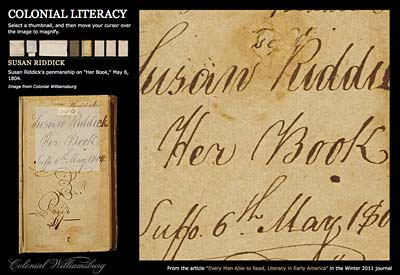 COLONIAL LITERACY
Select a thumbnail, and then move your cursor over
the image to magnify.
SUSAN RIDDICK
Susan Riddick's penmanship on "Her Book," May 6,
1804.
Image from Colonial Williamsburg
Susan Riddick
Her Book
Suffo. 6th May 1804
Susan Riddic
Her Book
Suffo. 6th May 180
Colonial Williamsburg
From the article "Every Man Able to Read, Literacy in Early America" in the Winter 2011 journal